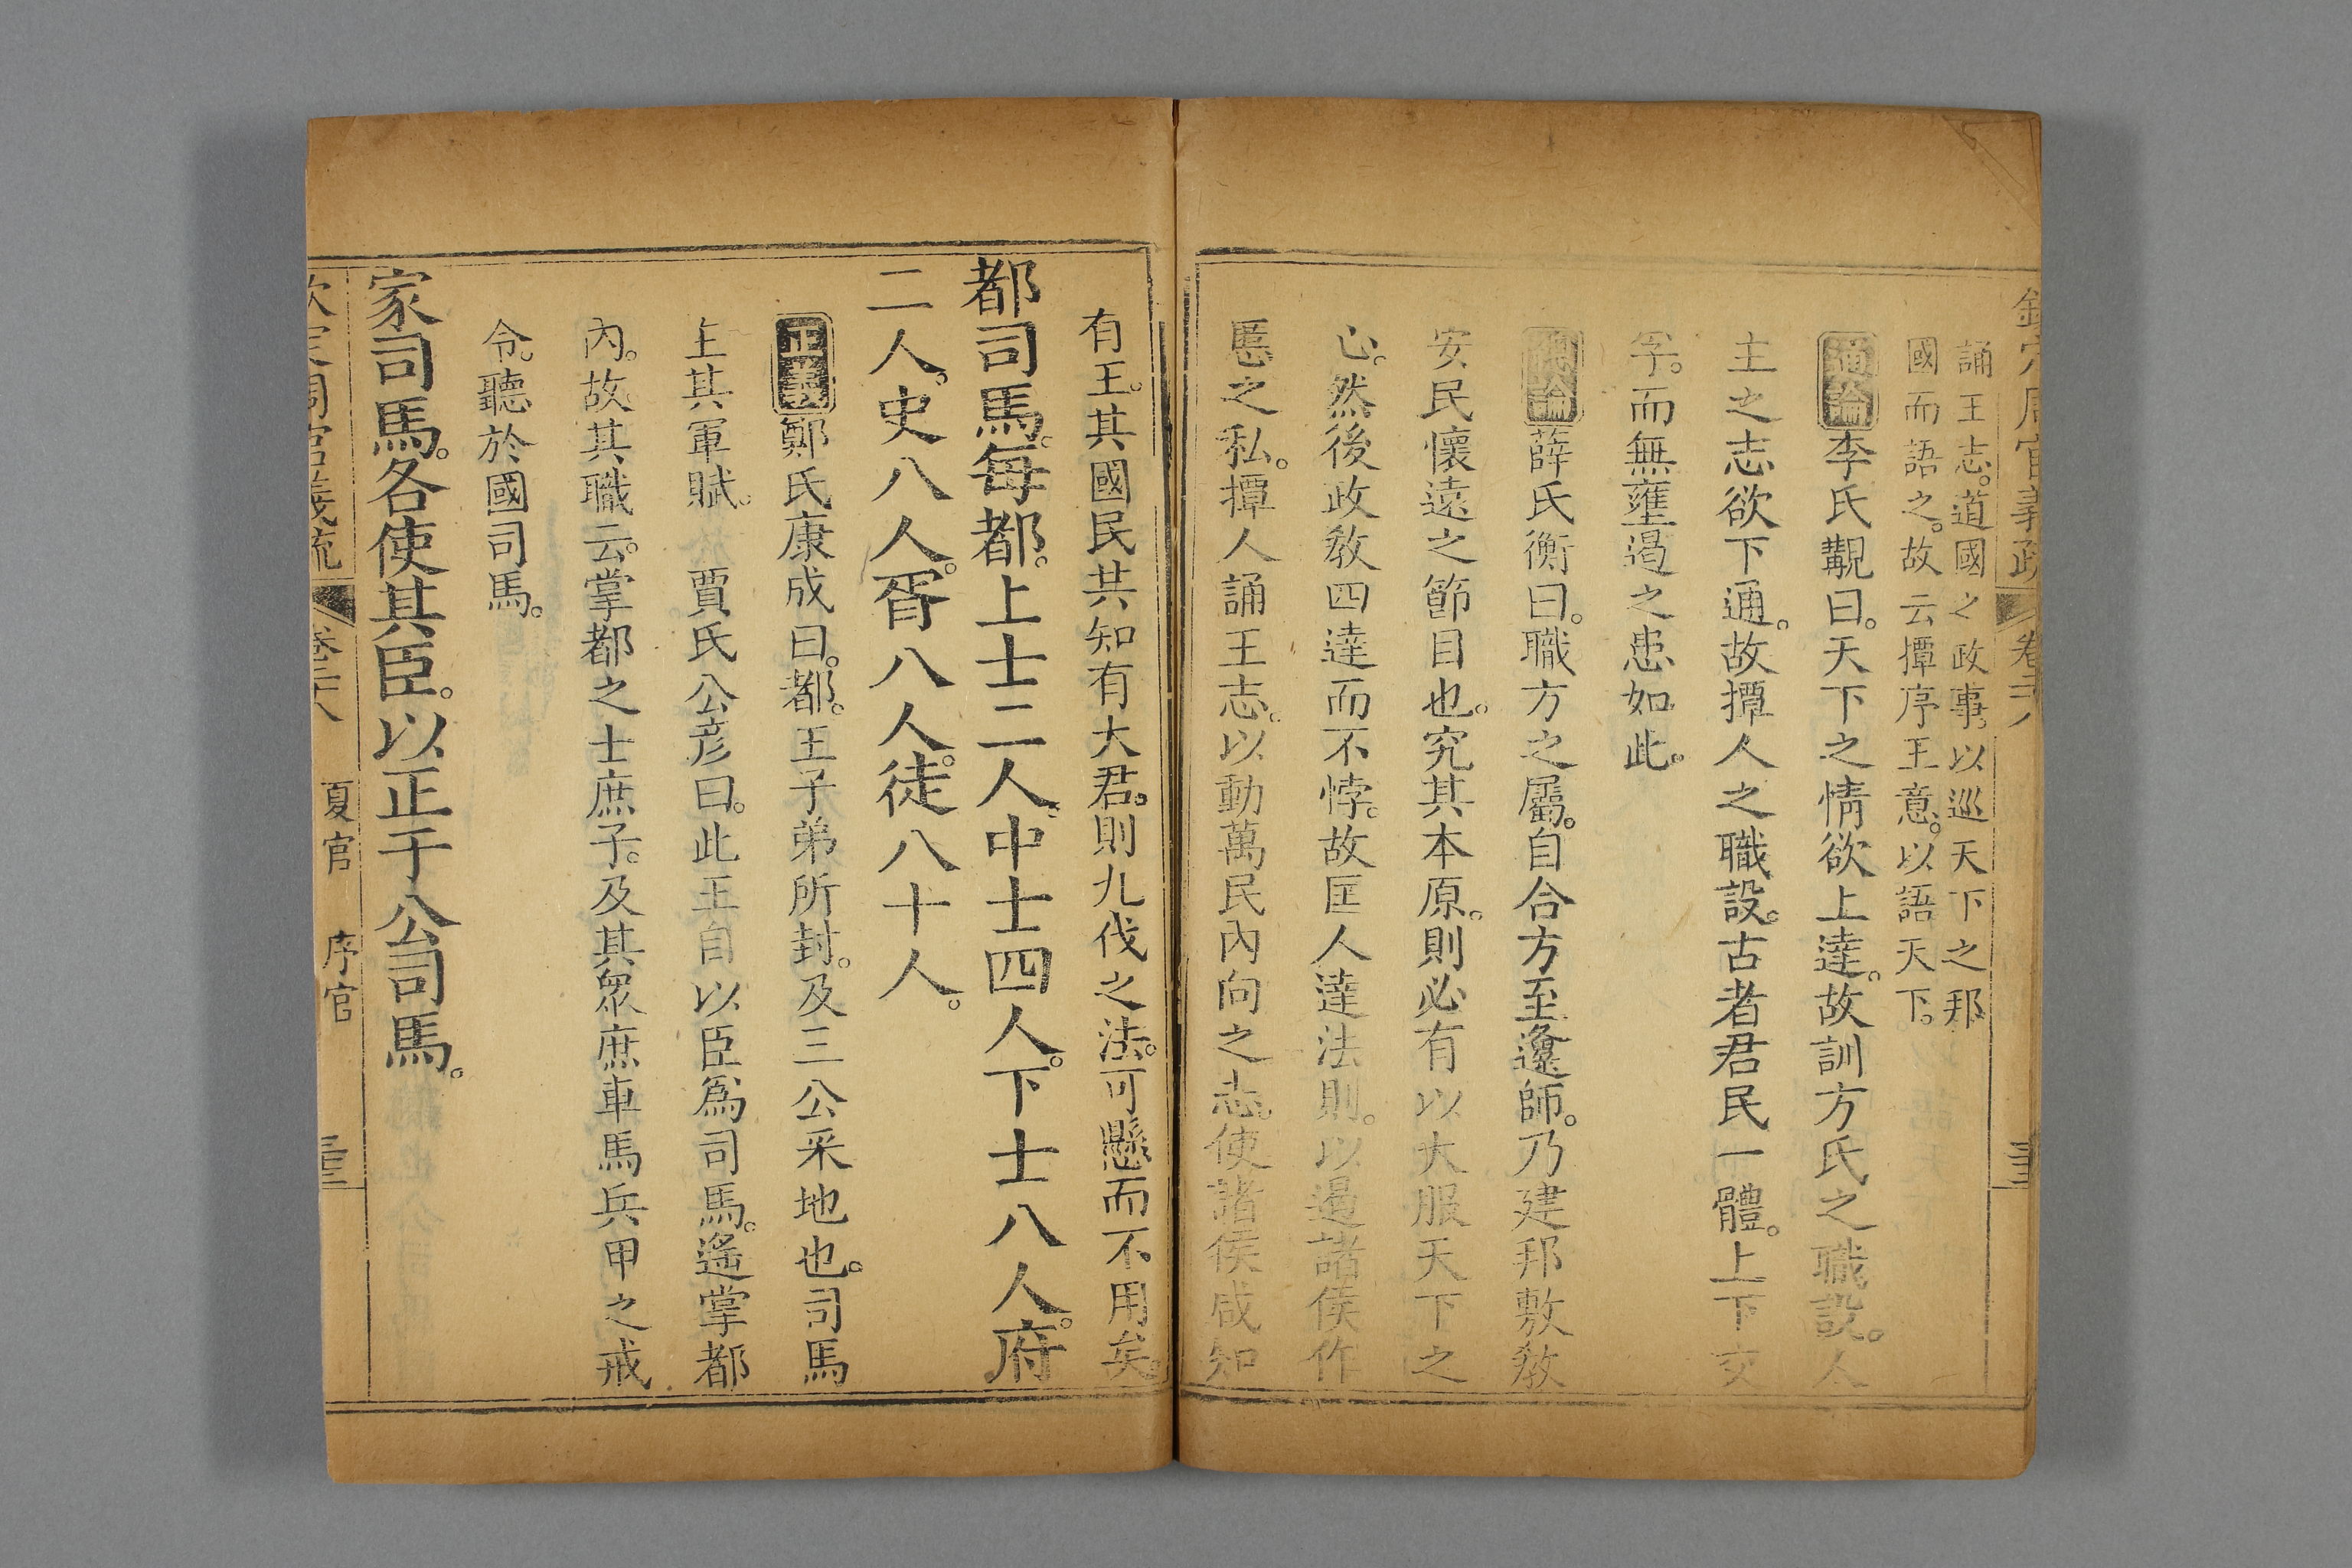 欽定周官義疏 卷二十八
誦王志。道國之政事。以巡天下之邦
國而語之。故云撢序王意。以語天下。
通論李氏觏曰。天下之情欲上達。故訓方氏之職設。人
主之志欲下通。故撢人之職設。古者君民一體。上下交
孚。而無壅遏之患如此。
總論薛氏衡曰。職方之屬。自合方至邍師。乃建邦敷敎
安民懷遠之節目也。究其本原。則必有以大服天下之
心。然後政敎四達而不悖。故匡人達法則。以遏諸侯作
慝之私。撢人誦王志。以動萬民內向之志。使諸侯咸知
有王。其國民共知有大君。則九伐之法。可懸而不用矣。
都司馬。每都。上士二人。中士四人。下士八人。府
二人。史八人。胥八人。徒八十人。
正義鄭氏康成曰。都。王子弟所封。及三公采地也。司馬
主其軍賦。 賈氏公彦曰。此王自以臣爲司馬。遙掌都
內。故其職云。掌都之士庶子。及其衆庶車馬兵甲之戒
令。聽於國司馬。
家司馬。各使其臣。以正于公司馬。
欽定周官義疏 卷二十八 夏官 序官